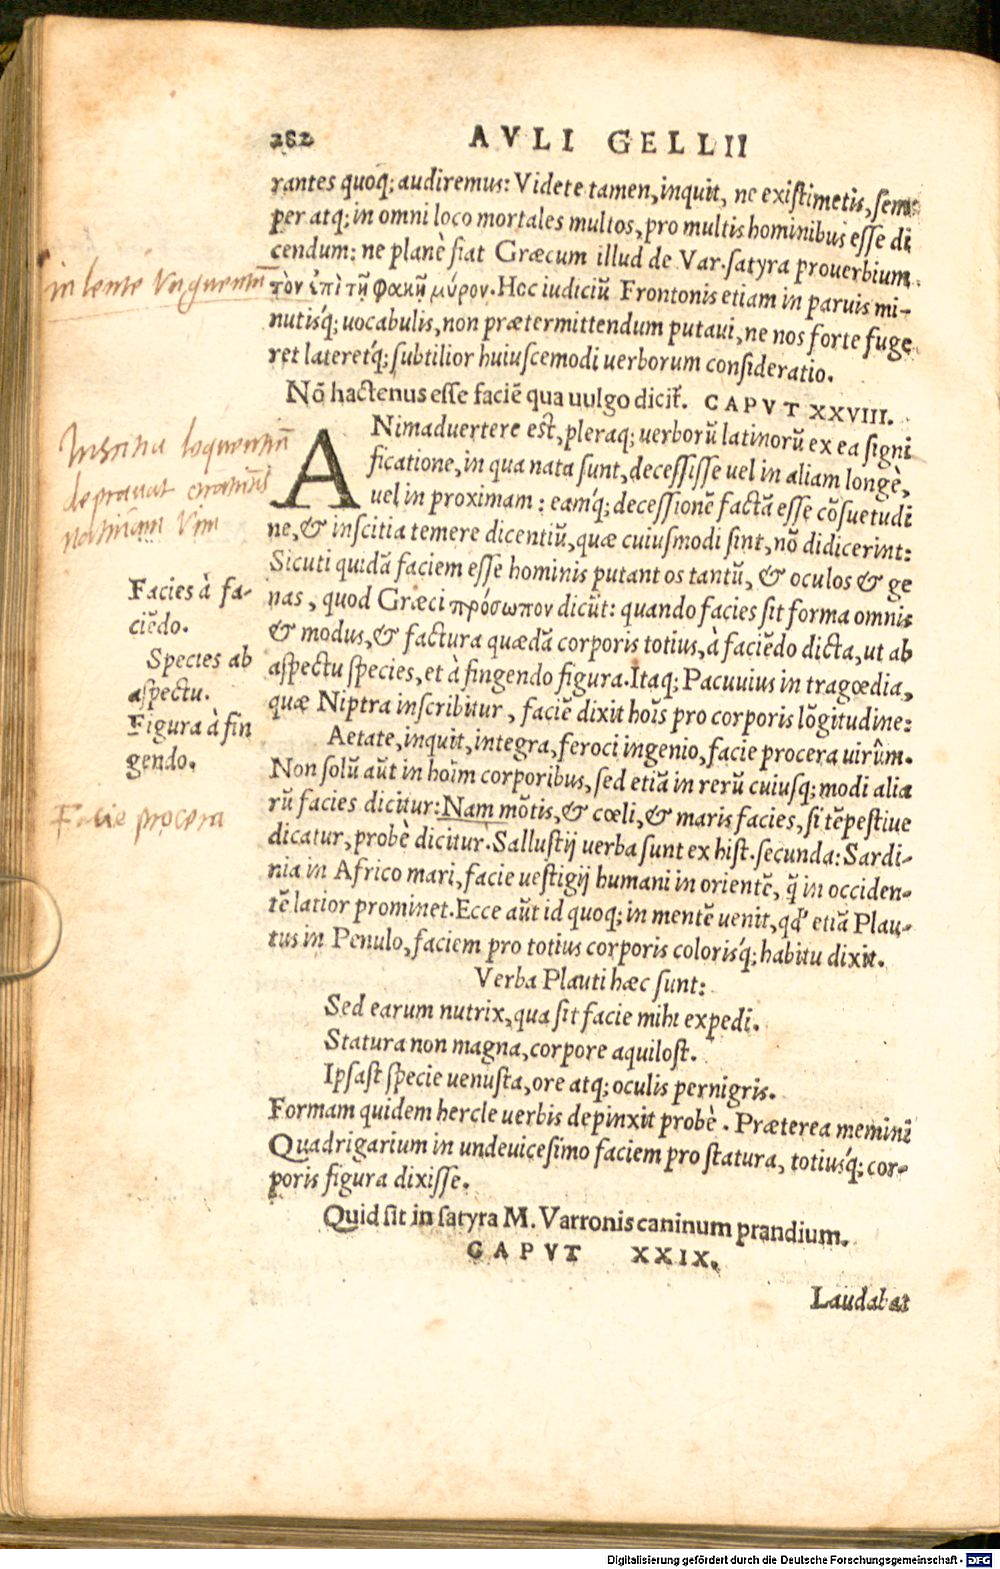 282 AVLI GELLII
rantes quoq; audiremus: Videte tamen, inquit, ne existimetis, sem
per atq; in omni loco mortales multos, pro multis hominibus esse di
cendum: ne planè fiat Græcum illud de Var. satyra prouerbium
in lente Vnguentū
τὸν ἐπὶ τῇ φακῇ μύρον. Hoc iudiciū Frontonis etiam in paruis mi-
nutisq́; uocabulis, non prætermittendum putaui, ne nos forte fuge
ret lateretq́; subtilior huiuscemodi uerborum consideratio.
Nō hactenus esse faciē qua uulgo dicit᷑. CAPVT XXVIII.
ANimaduertere est, pleraq; uerborū latinorū ex ea signi
ficatione, in qua nata sunt, decessisse uel in aliam longè,
uel in proximam: eamq́; decessionē factā esse cōsuetudi
ne, & inscitia temere dicentiū, quæ cuiusmodi sint, nō didicerint:
Inscitia loquentiū
deprauat
vim
Sicuti quidā faciem esse hominis putant os tantū, & oculos & ge
nas, quod Græci πρόσωπον dicūt: quando facies sit forma omnis
& modus, & factura quædā corporis totius, à faciēdo dicta, ut ab
aspectu species, et à fingendo figura. Itaq; Pacuuius in tragœdia,
quæ Niptra inscribitur, faciē dixit hoīs pro corporis lōgitudine:
Facies à fa-
ciēdo.
Species ab
aspectu.
Figura à fin
gendo.
Aetate, inquit, integra, feroci ingenio, facie procera uirûm.
Non solū aūt in hoīm corporibus, sed etiā in rerū cuiusq; modi alia
rū facies dicitur: Nam mōtis, & cœli, & maris facies, si tēpestiue
Facie procera
dicatur, probè dicitur. Sallustij uerba sunt ex hist. secunda: Sardi-
nia in Africo mari, facie uestigij humani in orientē, q̄ in occiden-
tē latior prominet. Ecce aūt id quoq; in mentē uenit, qd' etiā Plau-
tus in Penulo, faciem pro totius corporis colorisq́; habitu dixit.
Verba Plauti hæc sunt:
Sed earum nutrix, qua sit facie mihi expedi.
Statura non magna, corpore aquilost.
Ipsast specie uenusta, ore atq; oculis pernigris.
Formam quidem hercle uerbis depinxit probè. Præterea memini
Quadrigarium in undeuicesimo faciem pro statura, totiusq́; cor-
poris figura dixisse.
Quid sit in satyra M. Varronis caninum prandium.
CAPVT XXIX.
Laudabat
Digitalisierung gefördert durch die Deutsche Forschungsgemeinschaft - DFG